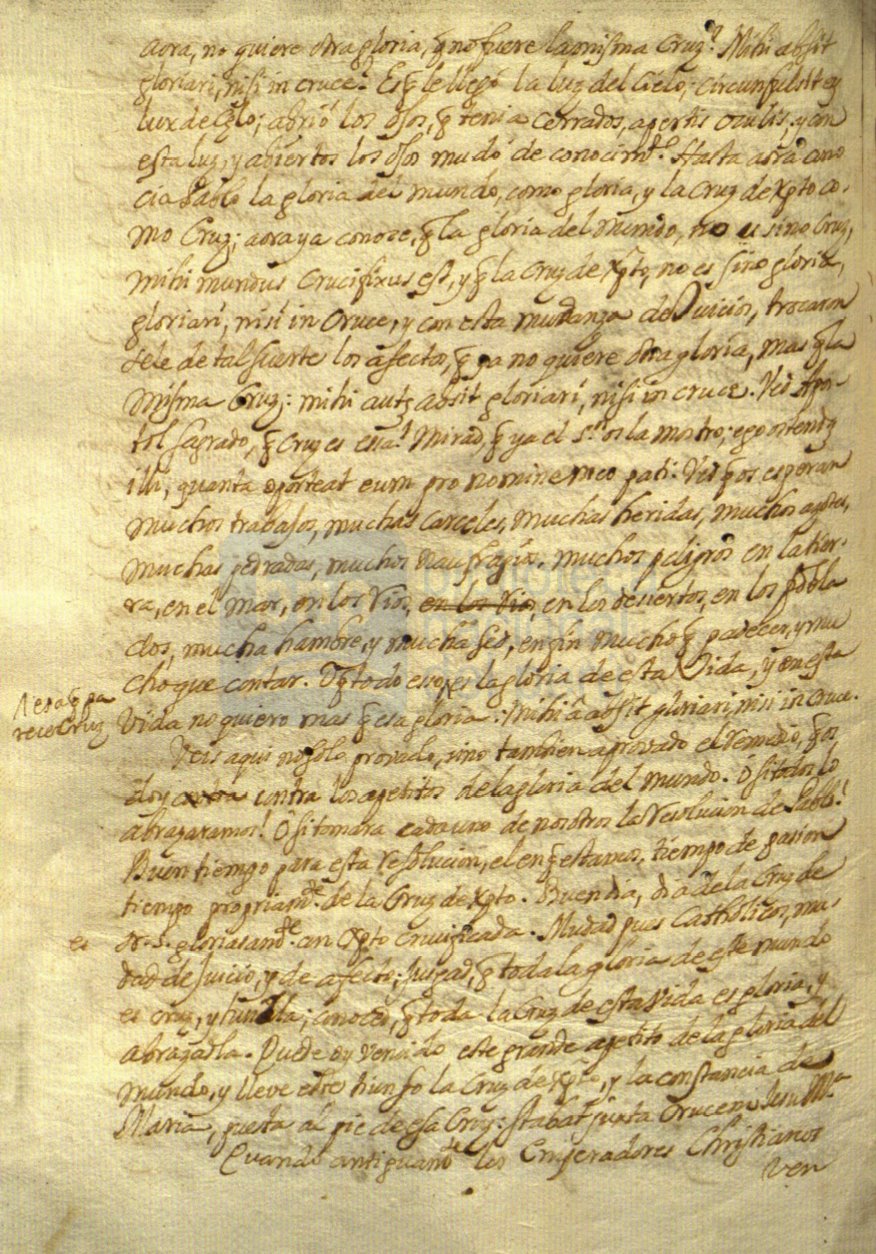 aora, no quiere otra gloria, q̃ no fuere la misma Cruz? Mihi absit
gloriari, nisi in cruce? Es q̃ le llegó la luz del Cielo; circunfulsit eũ
lux de Cælo; abrió los ojos, q̃ tenia cerrados, apertis oculis; y con
esta luz, y abiertos los ojos mudó de conocimto. Hasta aora cono
cia Pablo la gloria del mundo, como gloria, y la Cruz de Xpto co-
mo Cruz; aora ya conoce, q̃ la gloria del Mundo, no es sino Cruz,
mihi mundus crucifixus est, y q̃ la Cruz de Xpto, no es sino gloria,
gloriari, nisi in Cruce, y con esta mudanza de Juicios, trocaron
sele de tal suerte los afectos, q̃ ya no quiere otra gloria, mas q̃ la
misma Cruz: mihi autẽ absit gloriari, nisi in cruce. Veis Apos-
tol sagrado, q̃ Cruz es essa? Mirad, q̃ ya el Sr. os la mostro; ego ostendã
illi, quanta oporteat eum pro nomine meo pati. Veis q̃ os esperan
muchos trabajos, muchas carceles, muchas heridas, muchos azotes,
muchas pedradas, muchos naufragios, muchos peligros en la tier-
ra, en el mar, en los rios, en los rios en los desiertos, en los pobla
dos, mucha hambre, y mucha sed, en fin mucho q̃ padecer, y mu
cho que contar. q̃ todo esso es la gloria de esta Vida, y en esta
vida no quiero mas q̃ esa gloria: Mihi ã absit gloriari, nisi in cruce.
1 esa q̃ pa
rece Cruz
Veis aqui no solo provado, sino tambien aprovado el remedio, q̃ os
doy contra los apetitos de la gloria del mundo. O si todos lo
abrazaramos! O si tomara cada uno de nosotros la resolucion de Pablo!
Buen tiempo para esta resolucion, el en q̃ estamos, tiempo de pasion
tiempo propriamte. de la Cruz de Xpto. Buen dia, dia de la Cruz de
N. S. gloriasamte. en Xpto crucificada. Mudad pues Catholicos, mu-
es
dad de juicio, y de afecto; Juzgad, q̃ toda la gloria de este mundo
es cruz, y conoced, q̃ toda la Cruz de esta vida es gloria, y
abrazadla. Quede oy vencido este grande apetito de la gloria del
mundo, y lleve este triunfo la Cruz de Xpto, y la constancia de
Maria, puesta al pie de esa Cruz: stabat juxta Crucem Jesu Mar
Quando antiguamte. los Emperadores Christianos
ven
biblioteca
nacional